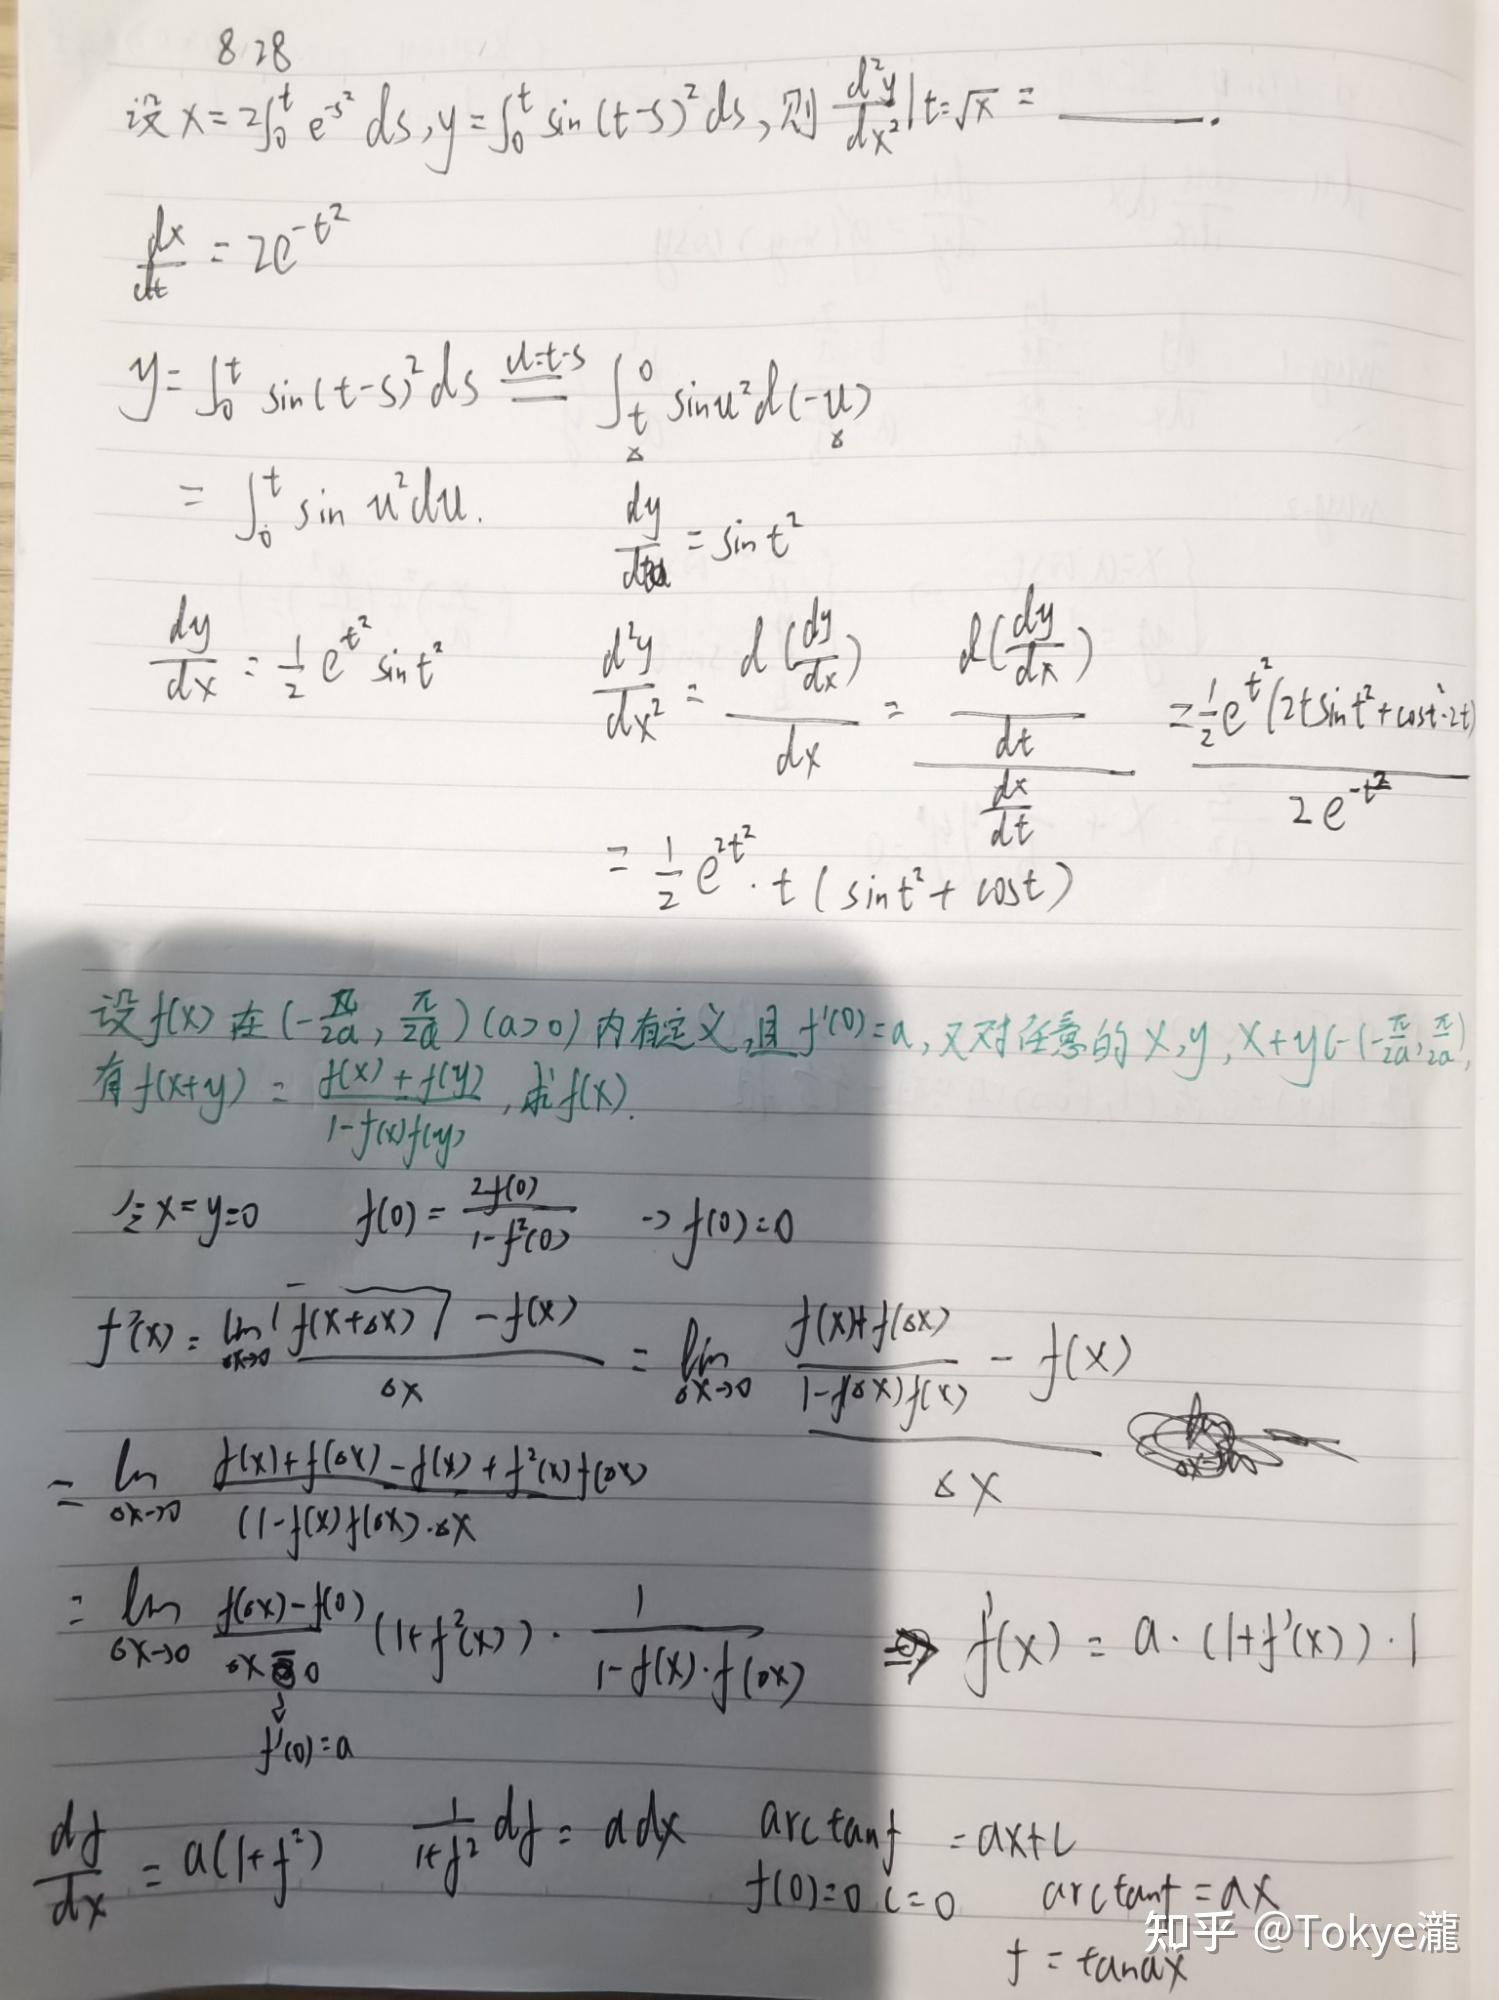 8.28
设 x=2∫₀ᵗ e^{-s²} ds, y=∫₀ᵗ sin(t-s)² ds, 则 d²y/dx² | t=√x = ______.
dx/dt = 2e^{-t²}
y=∫₀ᵗ sin(t-s)² ds =(u=t-s)= ∫ₜ⁰ sinu² d(-u)
= ∫₀ᵗ sin u² du. dy/dt = sint²
dy/dx = 1/2 e^{t²} sint² d²y/dx² = d(dy/dx)/dx = (d(dy/dx)/dt)/(dx/dt) = 1/2 e^{t²}(2tsint²+cost²·2t) / 2e^{-t²}
= 1/2 e^{2t²}·t(sint²+cost)
设f(x)在(-π/2a, π/2a)(a>0)内有定义,且f'(0)=a,又对任意的x,y,x+y∈(-π/2a,π/2a),
有f(x+y) = (f(x)+f(y))/(1-f(x)f(y)),求f(x).
令x=y=0 f(0)=2f(0)/(1-f²(0)) → f(0)=0
f'(x)= lim_{△x→0} [f(x+△x)]-f(x) / △x = lim_{△x→0} ((f(x)+f(△x))/(1-f(△x)f(x)) - f(x)) / △x
= lim_{△x→0} (f(x)+f(△x)-f(x)+f²(x)f(△x)) / (1-f(x)f(△x)·△x
= lim_{△x→0} (f(△x)-f(0))/(△x-0) (1+f²(x))· 1/(1-f(x)·f(△x)) ⇒ f'(x) = a·(1+f'(x))·1
f'(0)=a
df/dx = a(1+f²) 1/(1+f²) df = adx arctanf = ax+C
f(0)=0 C=0 arctanf=ax
f = tanax
知乎 @Tokye瀧